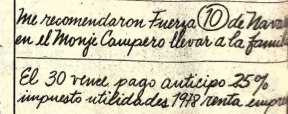 Me recomendaron Fuerza (10) de Nava
en el Monje Campero llevar a la famili
El 30 vence pago anticipo 25%
impuesto utilidades 1978 renta empre